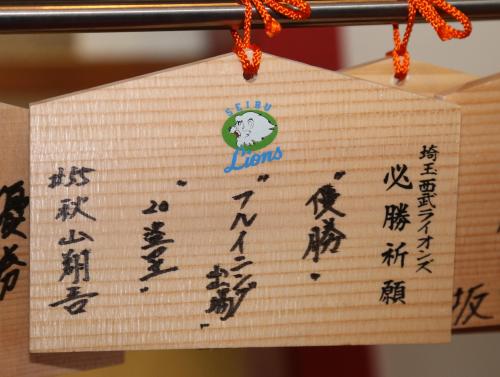 SEIBU
Lions
埼玉西武ライオンズ
必勝祈願
"優勝"
"フルイニング出場"
"20盗塁"
#55 秋山翔吾
優勝
坂